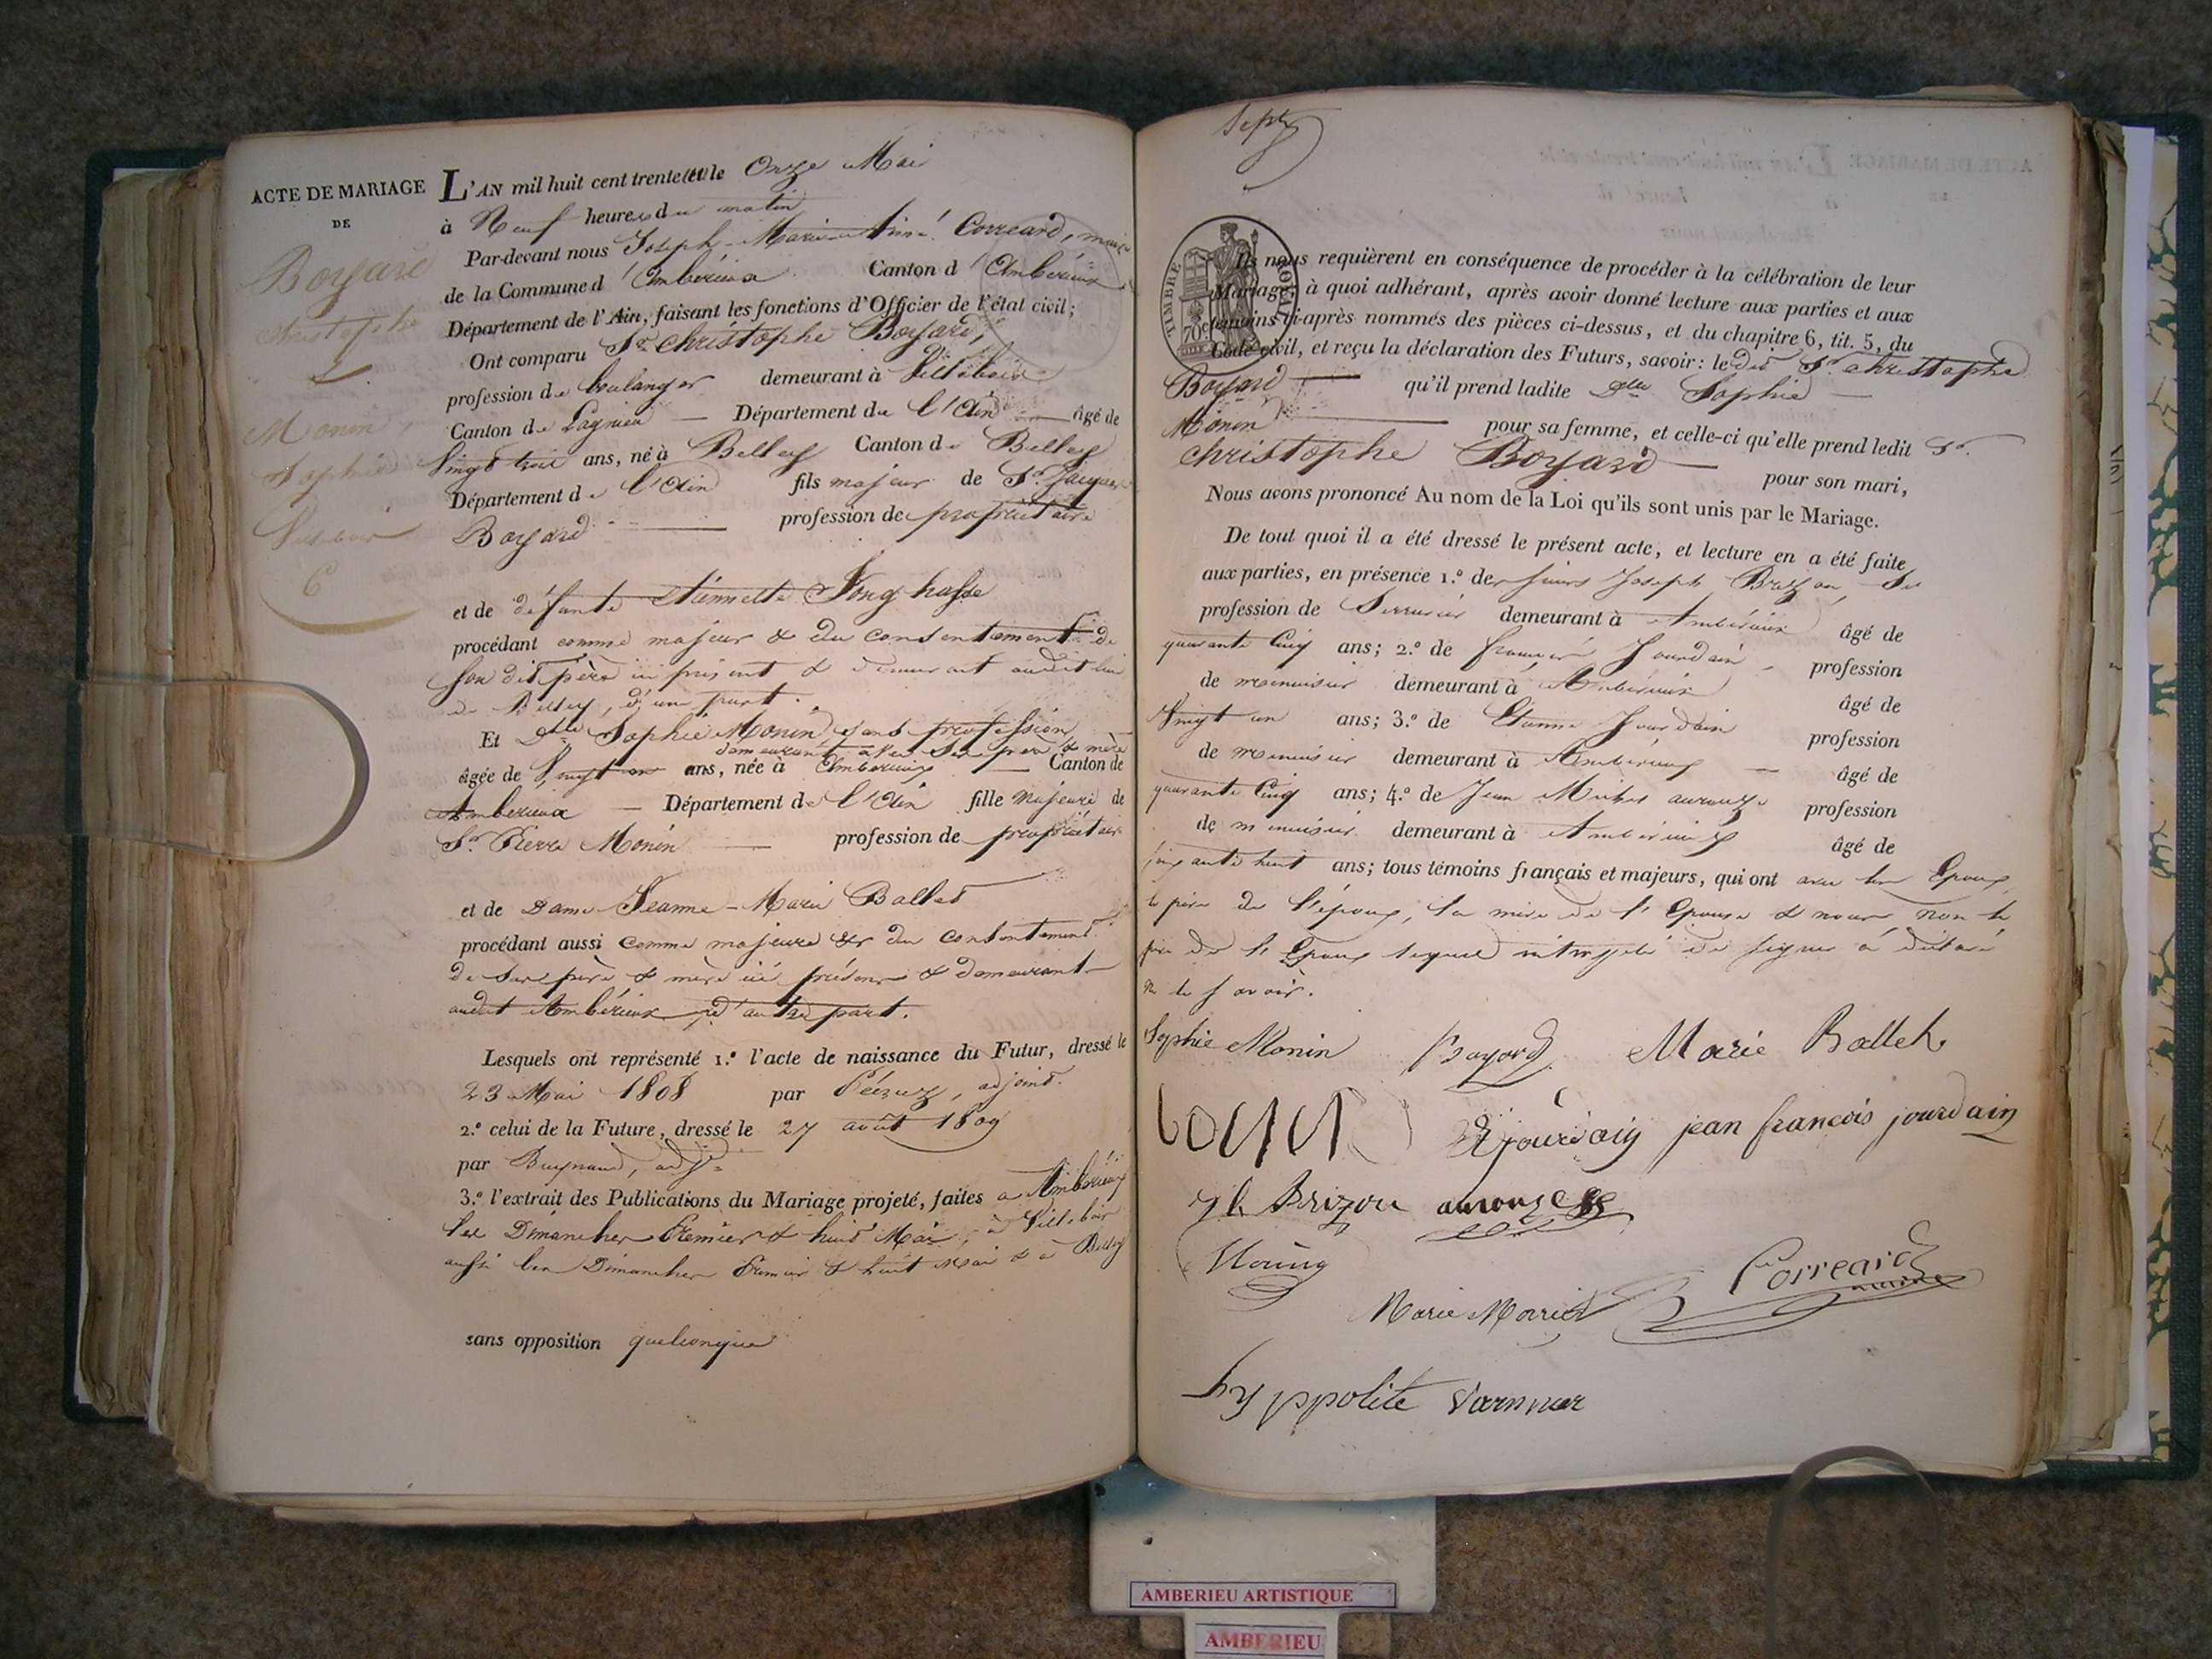 ACTE DE MARIAGE
DE
Boyard
christophe
&
Monin,
Sophie
6
L'AN mil huit cent trente et un le Onze Mai
à Neuf heures du matin
Par-devant nous Joseph-Marie-Aimé Correard, maire
de la Commune d'Ambérieux Canton d'Ambérieux
Département de l'Ain, faisant les fonctions d'Officier de l'état civil;
Ont comparu Sr. christophe Boyard,
profession de boulanger demeurant à Villebois
Canton de Lagnieu — Département de l'Ain — âgé de
Vingt trois ans, né à Belley Canton de Belley
Département de l'Ain fils majeur de Sr. Jacques
Boyard — profession de propriétaire
et de défunte Etiennette
procédant comme majeur & du consentement de
son dit père ici présent & demeurant audit lieu
de Belley, d'une part.
Et Dlle Sophie Monin, sans profession
demeurant avec ses père & mère
âgée de Vingt un ans, née à Ambérieux — Canton de
Ambérieux — Département de l'Ain fille majeure de
Sr. Pierre Monin — profession de propriétaire
et de Dame Jeanne-Marie Ballet
procédant aussi comme majeure & du consentement
de ses père & mère ici présens & demeurant
audit Ambérieux, d'autre part.
Lesquels ont représenté 1.º l'acte de naissance du Futur, dressé le
23 Mai 1808 par adjoint.
2.º celui de la Future, dressé le 27 août 1809
par
3.º l'extrait des Publications du Mariage projeté, faites à Ambérieux
les Dimanches Premier & huit Mai, à Villebois
aussi les Dimanches Premier & huit Mai & à Belley
sans opposition quelconque
Sept
TIMBRE ROYAL
70c
Ils nous requièrent en conséquence de procéder à la célébration de leur
Mariage; à quoi adhérant, après avoir donné lecture aux parties et aux
témoins ci-après nommés des pièces ci-dessus, et du chapitre 6, tit. 5, du
Code civil, et reçu la déclaration des Futurs, savoir: le dit Sr. christophe
Boyard — qu'il prend ladite Dlle Sophie —
Monin — pour sa femme, et celle-ci qu'elle prend ledit Sr.
christophe Boyard — pour son mari,
Nous avons prononcé Au nom de la Loi qu'ils sont unis par le Mariage.
De tout quoi il a été dressé le présent acte, et lecture en a été faite
aux parties, en présence 1.º de sieurs Joseph
profession de Serrurier demeurant à Ambérieux âgé de
quarante Cinq ans; 2.º de françois Jourdain, profession
de menuisier demeurant à Ambérieux âgé de
Vingt un ans; 3.º de Etienne Jourdain profession
de menuisier demeurant à Ambérieux — âgé de
quarante Cinq ans; 4.º de Jean Michel aurouze profession
de menuisier demeurant à Ambérieux âgé de
ans; tous témoins français et majeurs, qui ont avec les Epoux,
le père de l'épouse, la mère de l'Epouse & nous, non le
père de l'Epoux lequel interpellé de signer a déclaré
ne le savoir.
Sophie Monin Boyard Marie Ballet
E jourdain jean françois jourdain
Brizou aurouze
Monin
Correard
maire
Marie
hyppolite
AMBERIEU ARTISTIQUE
AMBERIEU